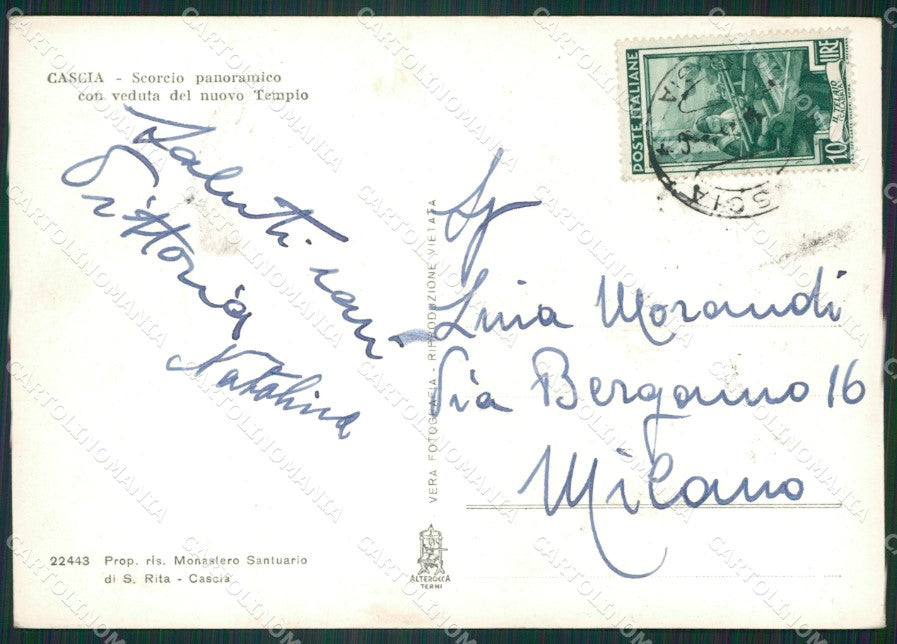 CASCIA - Scorcio panoramico
con veduta del nuovo Tempio
Saluti cari
Vittoria
Natalina
22443 Prop. ris. Monastero Santuario
di S. Rita - Cascia
VERA FOTOGRAFIA - RIPRODUZIONE VIETATA
ALTEROCCA
TERNI
POSTE ITALIANE
10 LIRE
IL TELAIO
CALABRIA
Lina Morandi
Via Bergamo 16
Milano
CARTOLINOMANIA